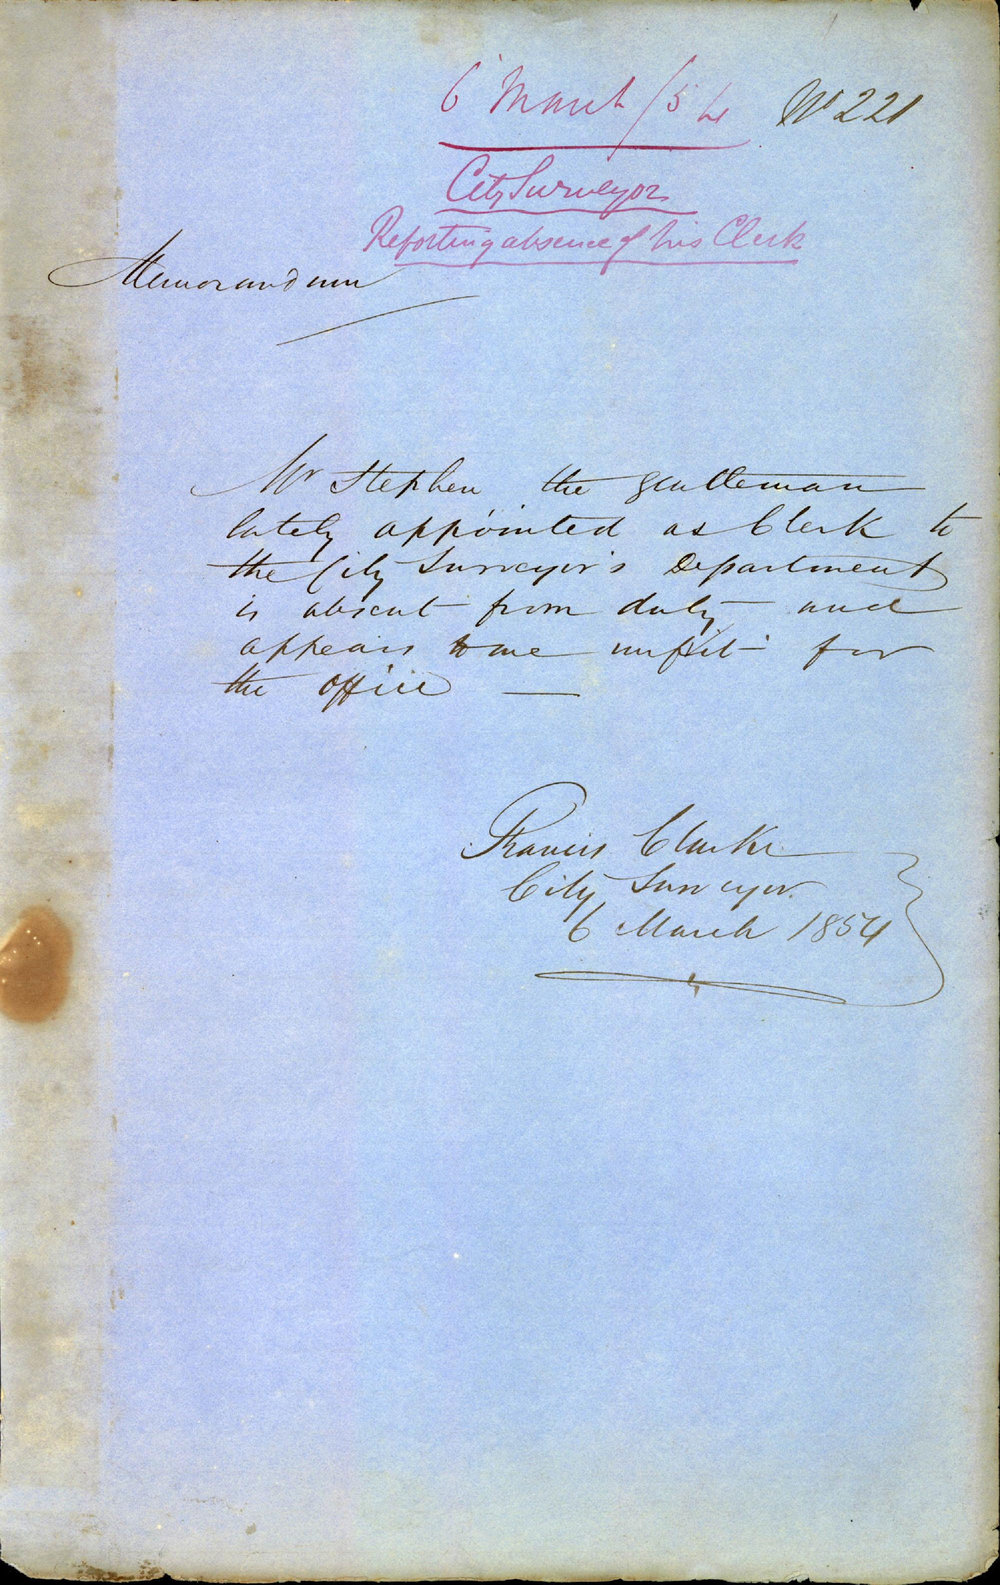 6 March /54 No 221
City Surveyor
Reporting absence of his Clerk
Memorandum
Mr Stephen the gentleman
lately appointed as Clerk to
the City Surveyor's Department
is absent from duty and
appears to me unfit for
the office —
Francis Clarke
City Surveyor.
6 March 1854